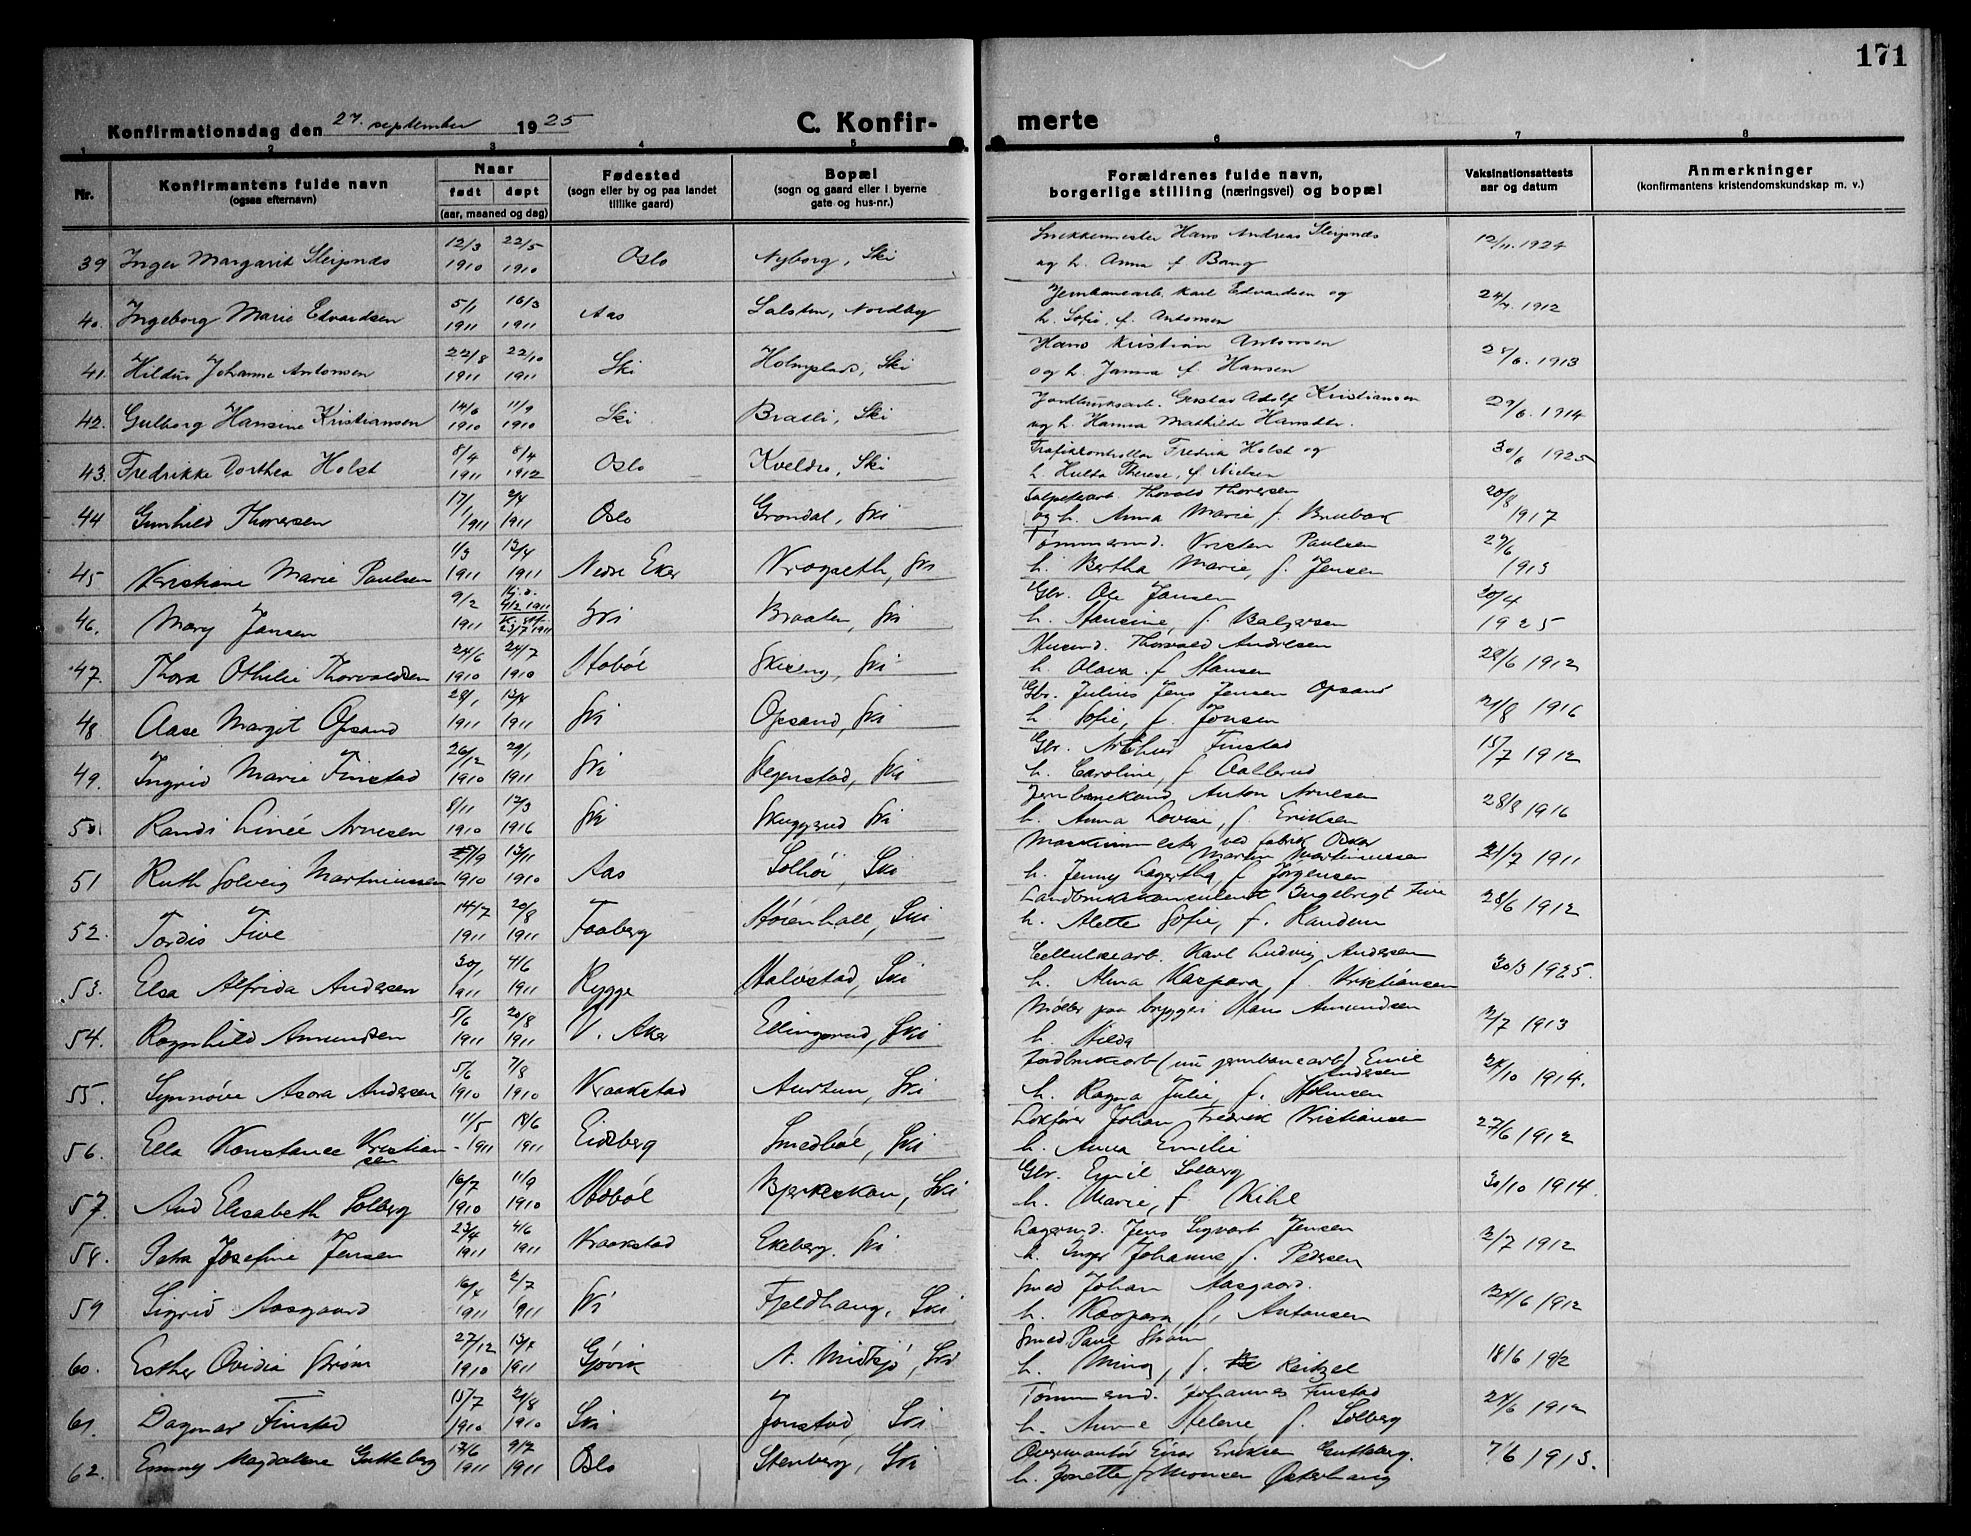 171
Konfirmationsdag den 27. september 1925
C. Konfir-merte
1 2 3 4 5 6 7 8
Nr.
Konfirmantens fulde navn
(ogsaa efternavn)
Naar
født døpt
(aar, maaned og dag)
Fødested
(sogn eller by og paa landet
tillike gaard)
Bopæl
(sogn og gaard eller i byerne
gate og hus-nr.)
Forældrenes fulde navn,
borgerlige stilling (næringsvei) og bopæl
Vaksinationsattests
aar og datum
Anmerkninger
(konfirmantens kristendomskundskap m. v.)
12/3 22/5 Snekkermester Hans Andreas Sleipnæs
39 Inger Margarit Sleipnæs 1910 1910 Oslo Nyborg, Ski og h. Anna f Bang 12/11.1924
5/1 16/3 Jernbanearb. Karl Edvardsen og
40. Ingeborg Marie Edvardsen 1911 1911 Aas Solsten, Nordby h. Sofie, f. Antonsen 1912
22/8 22/10 Hans Kristian Antonsen
41. Hildur Johanne Antonsen 1911 1911 Ski Holmplads, Ski og h. Janna f Hansen 1913
14/6 11/9 Jordbruksarb. Gustav Adolf Kristiansen
42. Gulborg Hansine Kristiansen 1910 1910 Ski Bratli, Ski og h. Hanna Mathilde 29/6.1914
8/4 8/4 Trafikkontrollør Fredrik Holst og
43. Fredrikke Dorthea Holst 1911 1912 Oslo Kveldro, Ski h. Hulda Therese, f. Nielsen 30/6 1925
17/1 2/4 Thorvald Thoresen
44 Gunhild Thoresen 1911 1911 Oslo Grøndal, Ski og h. Anna Marie f. Brubak 20/8 1917
1/3 13/4 Tømmermd. Kristen Paulsen
45 Kristiane Marie Paulsen 1911 1911 Nedre Eker Krogseth, Ski h. Bertha Marie, f. Jensen 29/6 1913
9/2 Hj. d. 4/2 1911 Gbr. Ole Jansen
46. Mary Jansen 1911 23/7 1911 Ski Braaten, Ski h. Hansine, f. 30/4 1925
24/6 24/7 Husmd. Thorvald Andresen
47. Thora Othilie Thorvaldsen 1910 1910 Hobøl Skieng, Ski h. Olava f. Hansen 28/6 1912
28/1 Gbr. Julius Jens Jensen Opsand
48 Aase Margit Opsand 1911 1911 Ski Opsand, Ski h. Sofie, f. Jonsen 21/8 1916
26/12 29/1 Gbr. Arthur Finstad
49. Ingrid Marie Finstad 1910 1911 Ski Hegenstad, Ski h. Caroline, f Aallerud 15/7 1912
8/11 12/3 Anton Arnesen
50 Randi Linée Arnesen 1910 1916 Ski Skuggerud Ski h. Anna Lovise, f. Eriksen 28/8 1916
13/11 Maskinmester ved fabrik Oskar
Martin Martinussen
51 Ruth Solveig Martinussen 1910 1910 Aas Solhøi, Ski h. Jenny Lagertha, f Jørgensen 21/7 1911
14/7 20/8 Landbrukskonsulent Ingebrigt Five
52. Tordis Five 1911 1911 Faaberg Høienhall, Ski h. Alette Sofie, f. Randem 28/6 1912
30/1 4/6 Cellulosearb. Karl Ludvig Andersen
53. Elsa Alfrida Andersen 1911 1911 Rygge Halvstad, Ski h. Alma Kaspara, f Kristiansen 30/3 1925.
5/6 20/8 Mølder paa bryggeri Hans Amundsen
54. Ragnhild Amundsen 1911 1911 V. Aker Ellingsrud, Ski h. Hilda 2/7 1913
5/6 7/8 Jordbruksarb (nu jernbanearb) Emil
Andersen
55. Synnøve Asora Andersen 1910 1910 Kraakstad Aurtun, Ski h. Ragna Julie, f. Holmsen 24/10 1914.
11/5 18/6 Lokfører Johan Fredrik Kristiansen
56. Ella Konstance Kristian
sen 1911 1911 Eidsberg Smedbøl, Ski h. Anna Emilie 27/6 1912
16/7 11/9 Gbr. Emil Solberg
57. Aud Elisabeth Solberg 1910 1910 Hobøl Bjerkeskau, Ski h. Marie, f Kihl 30/10 1914.
23/4 4/6 Lagermd. Jens Sigvart Jensen
58. Petra Josefine Jensen 1911 1911 Kraakstad Ekeberg, Ski h. Inger Johanne f. Pedersen 2/7 1912
16/4 2/7 Smed Johan Aasgaard.
59 Sigrid Aasgaard 1911 1911 Ski Fjeldhaug, Ski h. Kaspara f. Antonsen 24/6 1912
27/12 Smed Paul Strøm
60. Esther Ovidia Strøm 1910 1911 Gjøvik N. Midsjø, Ski h. Mina, f. Reitzel 18/6 1912
15/7 21/8 Tømmermd. Johannes Finstad
61. Dagmar Finstad 1910 1910 Ski Jonstad, Ski h. Anne Helene f. Solberg 1912
13/6 9/7 Einar Eriksen Gutteberg.
62. Emmy Magdalene Gutteberg 1911 1911 Oslo Stenberg, Ski h. Jonette f Monsen Østerhaug 7/6 1913.